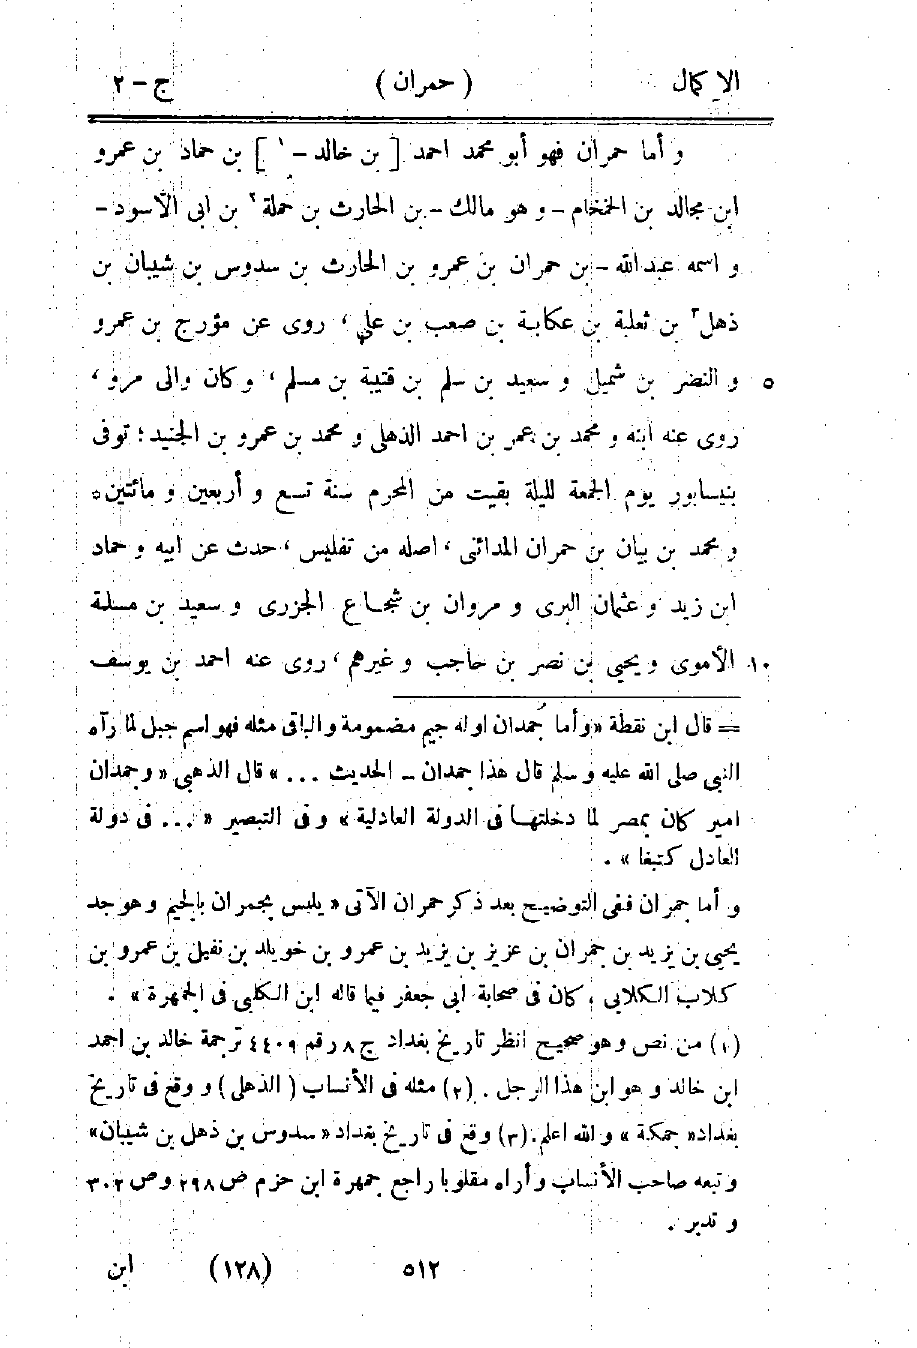 الإكمال (حمران) ج-٢
و أما حمران فهو أبو محمد احمد [بن خالد-١] بن حماد بن عمرو
ابن مجالد بن الخمخام- و هو مالك- بن الحارث بن حملة٢ بن ابى الأسود-
و اسمه عبد الله- بن حمران بن عمرو بن الحارث بن سدوس بن شيبان بن
ذهل٣ بن ثعلبة بن عكابة بن صعب بن علي، روى عن مؤرج بن عمرو
٥ و النضر بن شميل و سعيد بن سلم بن قتيبة بن مسلم، وكان والى مرو،
روى عنه ابنه و محمد بن عمر بن احمد الذهلى و محمد بن عمرو بن الجنيد؛ توفى
بنيسابور يوم الجمعة لليلة بقيت من المحرم سنة تسع و أربعين و مائتين٥
و محمد بن بيان بن حمران المدائنى، اصله من تفليس، حدث عن ابيه و حماد
ابن زيد و عثمان البرى و مروان بن شجاع الجزرى و سعيد بن مسلمة
١٠ الأموى و يحيى بن نصر بن حاجب و غيرهم، روى عنه احمد بن يوسف
= قال ابن نقطة «وأما جُمدان اوله جيم مضمومة والباقى مثله فهو اسم جبل لما رآه
النبى صلى الله عليه وسلم قال هذا جمدان - الحديث ...» قال الذهبى «وجمدان
امير كان بمصر لما دخلتها فى الدولة العادلية» وفى التبصير «... فى دولة
العادل كتبغا».
و أما جمران ففى التوضيح بعد ذكر حمران الآتى «يلبس بجمران بالجيم وهو جد
يحيى بن يزيد بن جمران بن عزيز بن يزيد بن عمرو بن خويلد بن نفيل بن عمرو بن
كلاب الكلابى، كان فى صحابة ابى جعفر فيما قاله ابن الكلبى فى الجمهرة».
(١) من نص وهو صحيح انظر تاريخ بغداد ج ٨ رقم ٤٤٠٩ ترجمة خالد بن احمد
ابن خالد و هو ابن هذا الرجل. (٢) مثله فى الأنساب (الذهلى) و وقع فى تاريخ
بغداد «جمكة» والله اعلم. (٣) وقع فى تاريخ بغداد «سدوس بن ذهل بن شيبان»
وتبعه صاحب الأنساب وأراه مقلوبا راجع جمهرة ابن حزم ص ٢٩٨ وص ٣٠٢
و تدبر.
٥١٢ (١٢٨) ابن